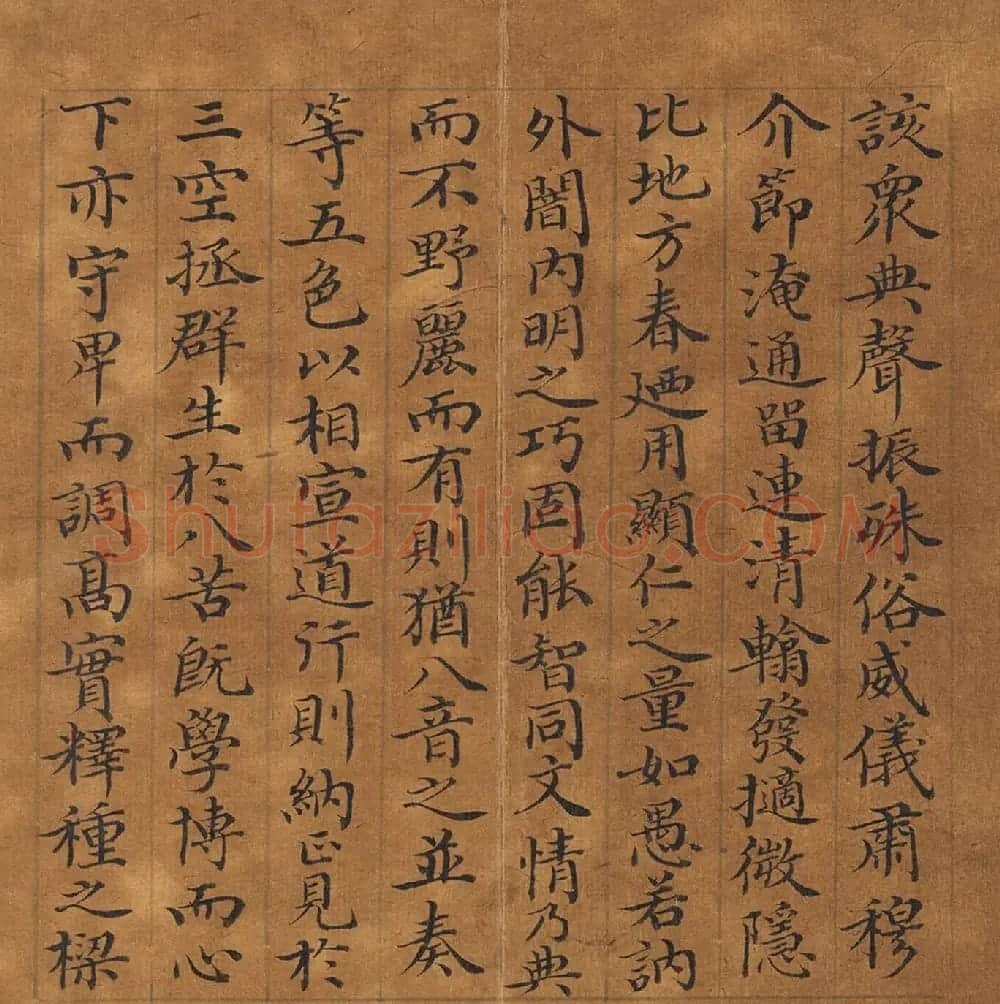 該衆典聲振殊俗威儀肅穆
介節淹通留連清翰發擿微隱
比地方春廼用顯仁之量如愚若訥
外闇内明之巧固能智同文情乃典
而不野麗而有則猶八音之並奏
等五色以相宣道行則納正見於
三空拯群生於八苦既學博而心
下亦守卑而調髙實釋種之樑
Shufaziliao.COM